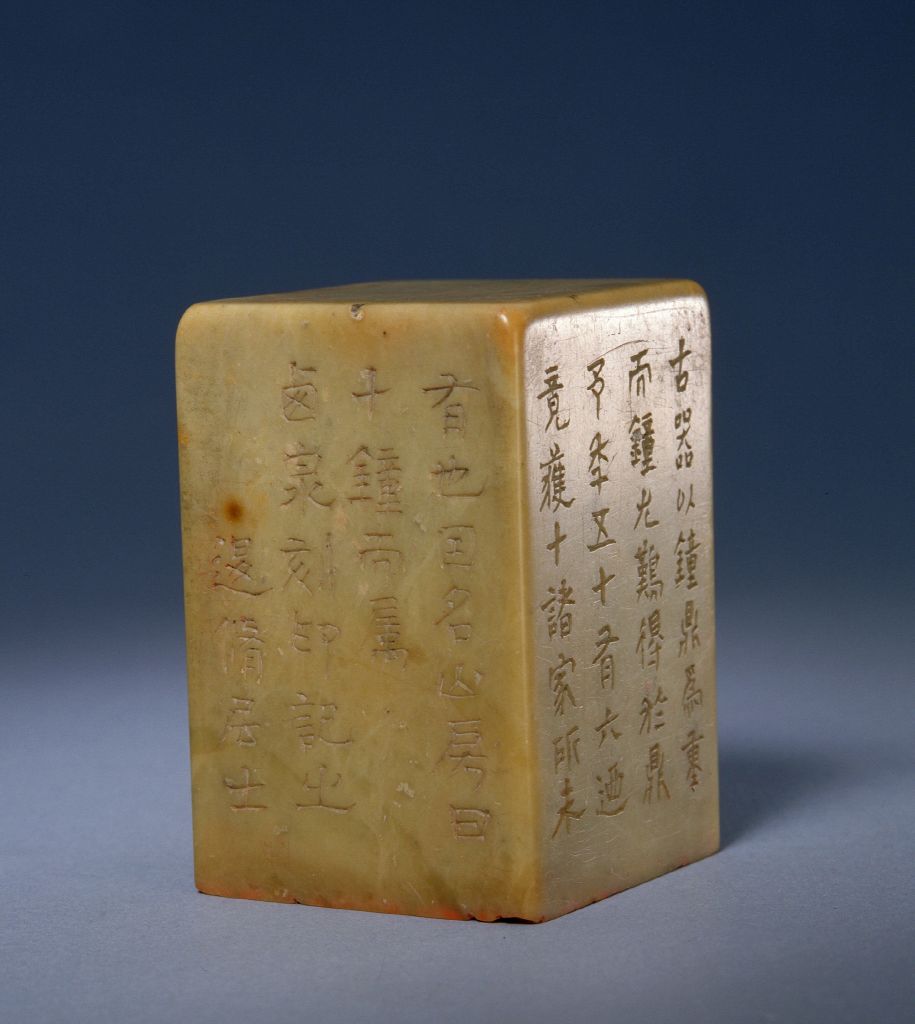 古器以鐘鼎爲重
而鐘尤難得於鼎
予秊五十有六迺
竟獲十諸家所未
有也因名山房曰
十鐘而屬
西泉刻印記之
退脩居士